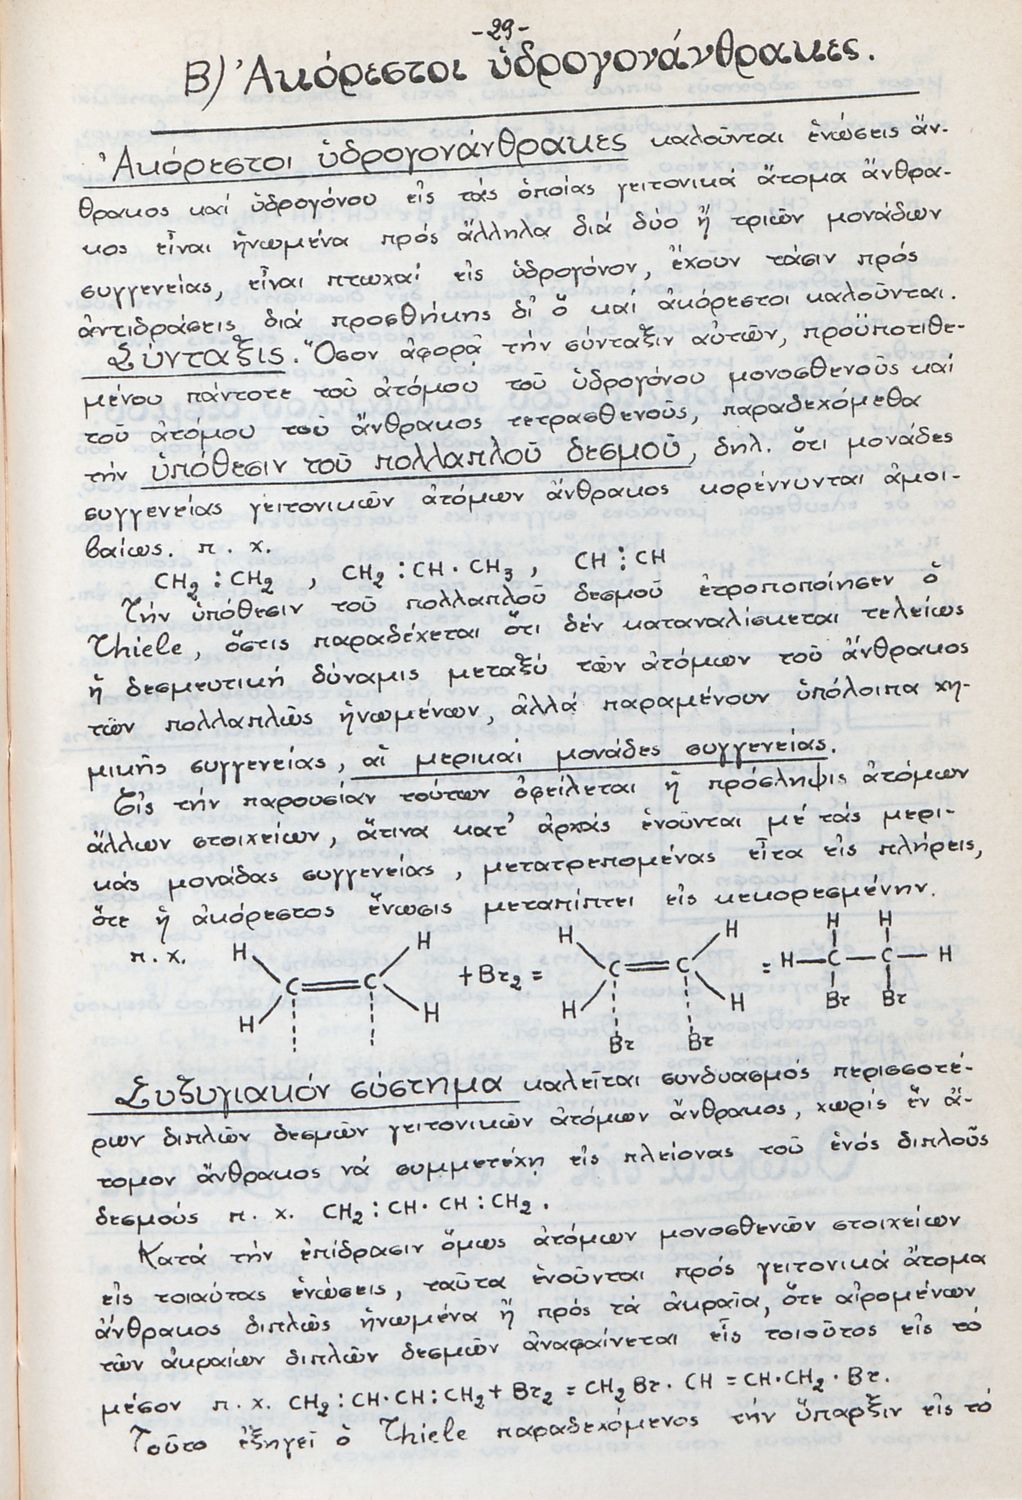 -29-
Β) Ἀκόρεστοι ὑδρογονάνθρακες.
Ἀκόρεστοι ὑδρογονάνθρακες καλοῦνται ἑνώσεις ἄν-
θρακος καί ὑδρογόνου εἰς τάς ὁποίας γειτονικά ἄτομα ἄνθρα-
κος εἶναι ἡνωμένα πρός ἄλληλα διά δύο ἤ τριῶν μονάδων
συγγενείας, εἶναι πτωχαί εἰς ὑδρογόνον, ἔχουν τάσιν πρός
ἀντιδράσεις διά προσθήκης δι' ὅ καί ἀκόρεστοι καλοῦνται.
Σύνταξις. Ὅσον ἀφορᾷ τήν σύνταξιν αὐτῶν, προϋποτιθε-
μένου πάντοτε τοῦ ἀτόμου τοῦ ὑδρογόνου μονοσθενοῦς καί
τοῦ ἀτόμου τοῦ ἄνθρακος τετρασθενοῦς, παραδεχόμεθα
τήν ὑπόθεσιν τοῦ πολλαπλοῦ δεσμοῦ, δηλ. ὅτι μονάδες
συγγενείας γειτονικῶν ἀτόμων ἄνθρακος κορέννυνται ἀμοι-
βαίως. π. χ.
CH₂ : CH₂ , CH₂ : CH · CH₃ , CH ⋮ CH
Τήν ὑπόθεσιν τοῦ πολλαπλοῦ δεσμοῦ ἐτροποποίησεν ὁ
Thiele, ὅστις παραδέχεται ὅτι δέν καταναλίσκεται τελείως
ἡ δεσμευτική δύναμις μεταξύ τῶν ἀτόμων τοῦ ἄνθρακος
τῶν πολλαπλῶς ἡνωμένων, ἀλλά παραμένουν ὑπόλοιπα χη-
μικῆς συγγενείας, αἱ μερικαί μονάδες συγγενείας.
Εἰς τήν παρουσίαν τούτων ὀφείλεται ἡ πρόσληψις ἀτόμων
ἄλλων στοιχείων, ἅτινα κατ' ἀρχάς ἑνοῦνται μέ τάς μερι-
κάς μονάδας συγγενείας, μετατρεπομένας εἶτα εἰς πλήρεις,
ὅτε ἡ ἀκόρεστος ἕνωσις μεταπίπτει εἰς κεκορεσμένην.
π. χ. H H H H H H
C = C + Br₂ = C = C = H — C — C — H
H H H H Br Br
Br Br
Συζυγιακόν σύστημα καλεῖται συνδυασμός περισσοτέ-
ρων διπλῶν δεσμῶν γειτονικῶν ἀτόμων ἄνθρακος, χωρίς ἕν ἄ-
τομον ἄνθρακος νά συμμετέχῃ εἰς πλείονας τοῦ ἑνός διπλοῦς
δεσμούς π. χ. CH₂ : CH · CH : CH₂ .
Κατά τήν ἐπίδρασιν ὅμως ἀτόμων μονοσθενῶν στοιχείων
εἰς τοιαύτας ἑνώσεις, ταῦτα ἑνοῦνται πρός γειτονικά ἄτομα
ἄνθρακος διπλῶς ἡνωμένα ἤ πρός τά ἀκραῖα, ὅτε αἰρομένων
τῶν ἀκραίων διπλῶν δεσμῶν ἀναφαίνεται εἷς τοιοῦτος εἰς τό
μέσον π. χ. CH₂ : CH · CH : CH₂ + Br₂ = CH₂ Br · CH = CH · CH₂ · Br.
Τοῦτο ἐξηγεῖ ὁ Thiele παραδεχόμενος τήν ὕπαρξιν εἰς τό